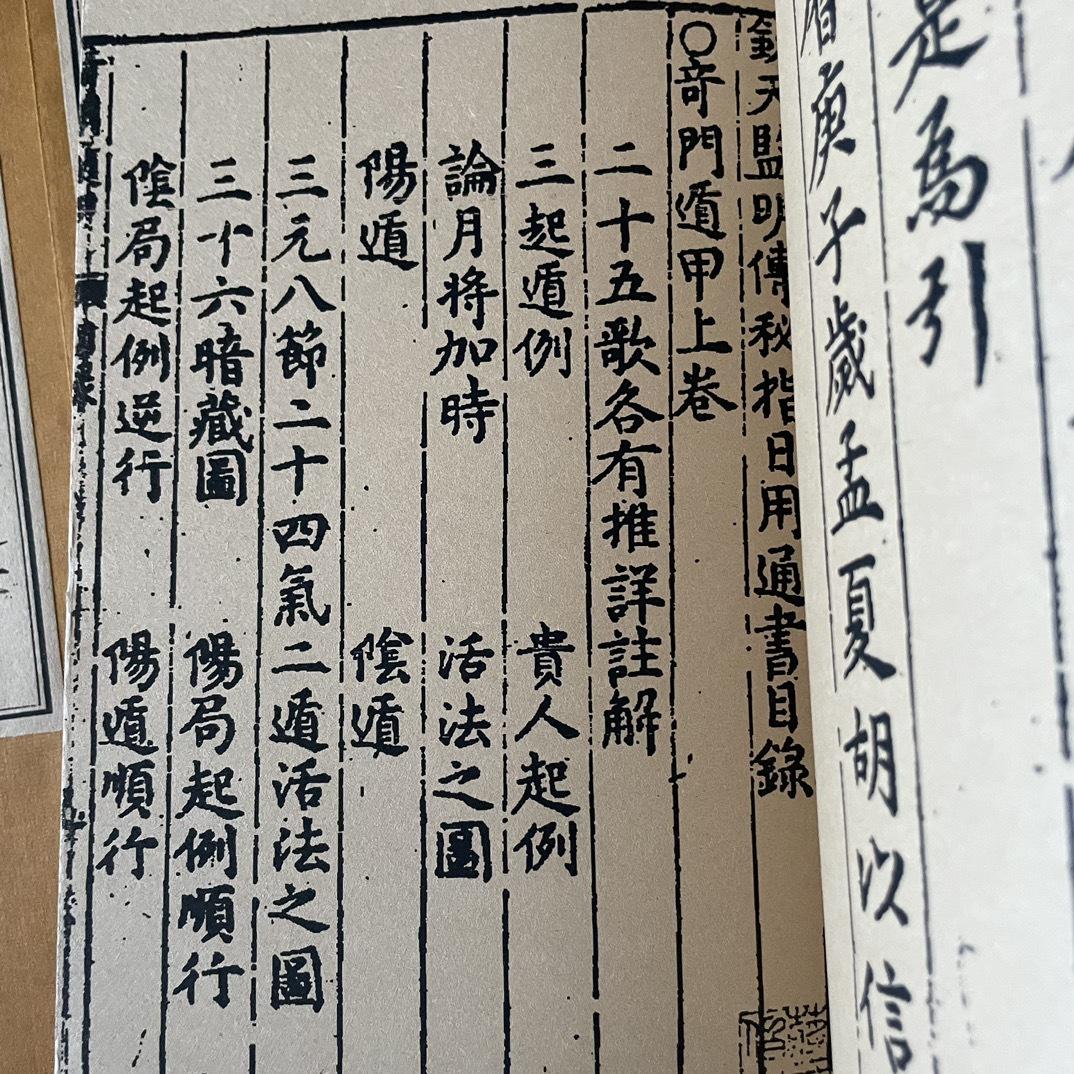 是為引
庚子歲孟夏胡以信
欽天監明傳秘指日用通書目錄
○奇門遁甲上卷
二十五歌各有推詳註解
三起遁例　貴人起例
論月將加時　活法之圖
陽遁　陰遁
三元八節二十四氣二遁活法之圖
三十六暗藏圖　陽局起例順行
陰局起例逆行　陽遁順行